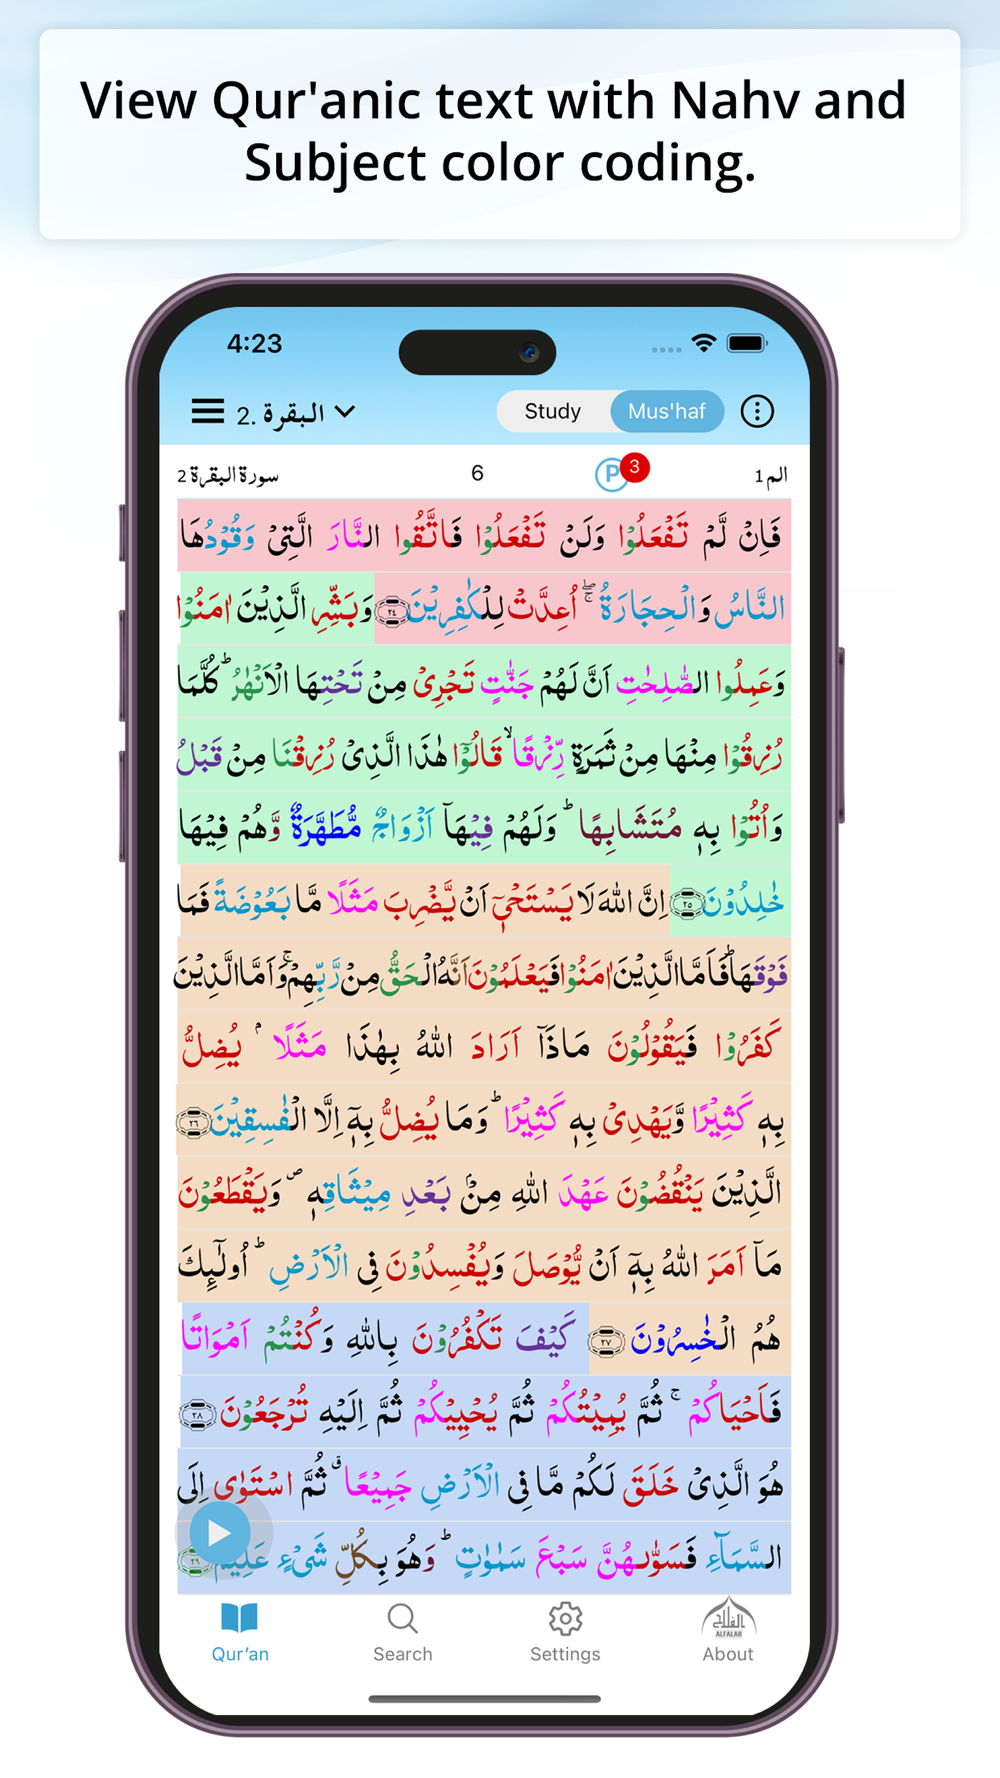 View Qur'anic text with Nahv and
Subject color coding.
4:23
2. البقرة
Study
Mus'haf
سورة البقرة 2
6
P 3
الم 1
فَاِنْ لَّمْ تَفْعَلُوْا وَلَنْ تَفْعَلُوْا فَاتَّقُوا النَّارَ الَّتِیْ وَقُوْدُهَا
النَّاسُ وَالْحِجَارَةُ ۚۖ اُعِدَّتْ لِلْكٰفِرِیْنَ ۲۴ وَبَشِّرِ الَّذِیْنَ اٰمَنُوْا
وَعَمِلُوا الصّٰلِحٰتِ اَنَّ لَهُمْ جَنّٰتٍ تَجْرِیْ مِنْ تَحْتِهَا الْاَنْهٰرُ ؕ كُلَّمَا
رُزِقُوْا مِنْهَا مِنْ ثَمَرَةٍ رِّزْقًا ۙ قَالُوْا هٰذَا الَّذِیْ رُزِقْنَا مِنْ قَبْلُ
وَاُتُوْا بِهٖ مُتَشَابِهًا ؕ وَلَهُمْ فِیْهَاۤ اَزْوَاجٌ مُّطَهَّرَةٌ وَّهُمْ فِیْهَا
خٰلِدُوْنَ ۲۵ اِنَّ اللّٰهَ لَا یَسْتَحْیٖۤ اَنْ یَّضْرِبَ مَثَلًا مَّا بَعُوْضَةً فَمَا
فَوْقَهَا ؕ فَاَمَّا الَّذِیْنَ اٰمَنُوْا فَیَعْلَمُوْنَ اَنَّهُ الْحَقُّ مِنْ رَّبِّهِمْ ۚ وَاَمَّا الَّذِیْنَ
كَفَرُوْا فَیَقُوْلُوْنَ مَاذَاۤ اَرَادَ اللّٰهُ بِهٰذَا مَثَلًا ۘ یُضِلُّ
بِهٖ كَثِیْرًا وَّیَهْدِیْ بِهٖ كَثِیْرًا ؕ وَمَا یُضِلُّ بِهٖۤ اِلَّا الْفٰسِقِیْنَ ۲۶
الَّذِیْنَ یَنْقُضُوْنَ عَهْدَ اللّٰهِ مِنْۢ بَعْدِ مِیْثَاقِهٖ ۪ وَیَقْطَعُوْنَ
مَاۤ اَمَرَ اللّٰهُ بِهٖۤ اَنْ یُّوْصَلَ وَیُفْسِدُوْنَ فِی الْاَرْضِ ؕ اُولٰٓئِكَ
هُمُ الْخٰسِرُوْنَ ۲۷ كَیْفَ تَكْفُرُوْنَ بِاللّٰهِ وَكُنْتُمْ اَمْوَاتًا
فَاَحْیَاكُمْ ۚ ثُمَّ یُمِیْتُكُمْ ثُمَّ یُحْیِیْكُمْ ثُمَّ اِلَیْهِ تُرْجَعُوْنَ ۲۸
هُوَ الَّذِیْ خَلَقَ لَكُمْ مَّا فِی الْاَرْضِ جَمِیْعًا ۗ ثُمَّ اسْتَوٰۤی اِلَی
السَّمَآءِ فَسَوّٰىهُنَّ سَبْعَ سَمٰوٰتٍ ؕ وَهُوَ بِكُلِّ شَیْءٍ عَلِیْمٌ ۲۹
Qur'an
Search
Settings
الفلاح
ALFALAH
About